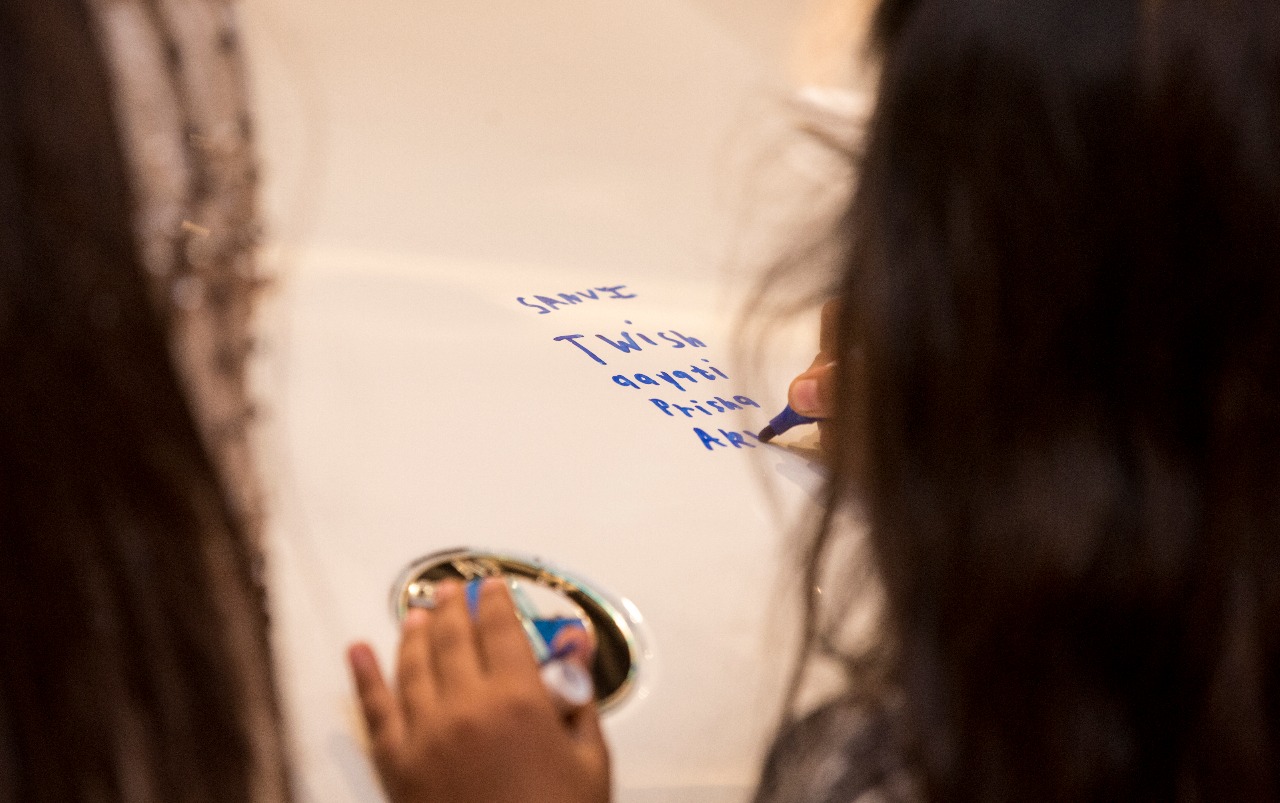 SAAVI
TWish
aayati
Prisha
AR